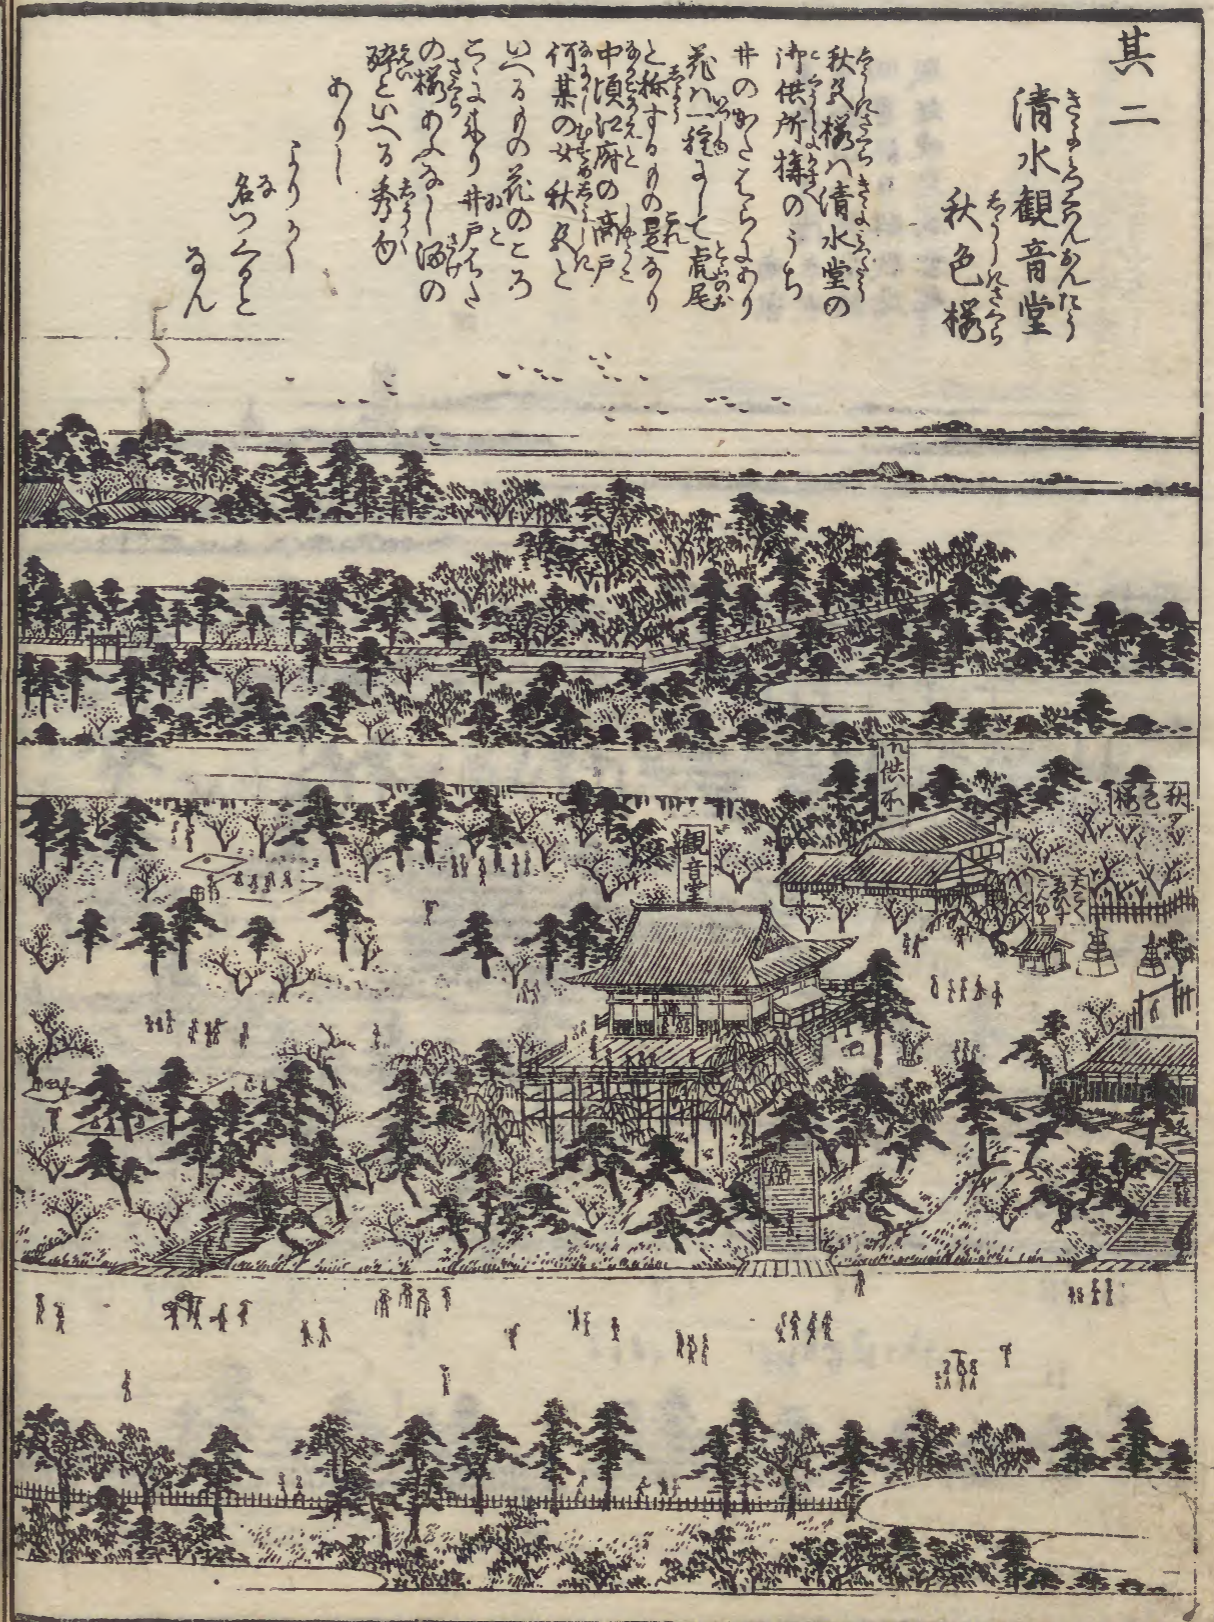 其二
清水観音堂
きよみづくわんおんだう
秋色桜
しうしきさくら
秋色桜ハ清水堂の
御供所構のうち
井のかたはらにあり
花ハ一種にして虎尾
と称するもの是なり
中頃江府の商戸
何某の女秋色と
いへるもの花のころ
こゝに来り井戸はた
の桜あふなし酒の
酔といへる秀句
ありし
よりかく
名つくると
なん
御供所
観音堂
秋色桜